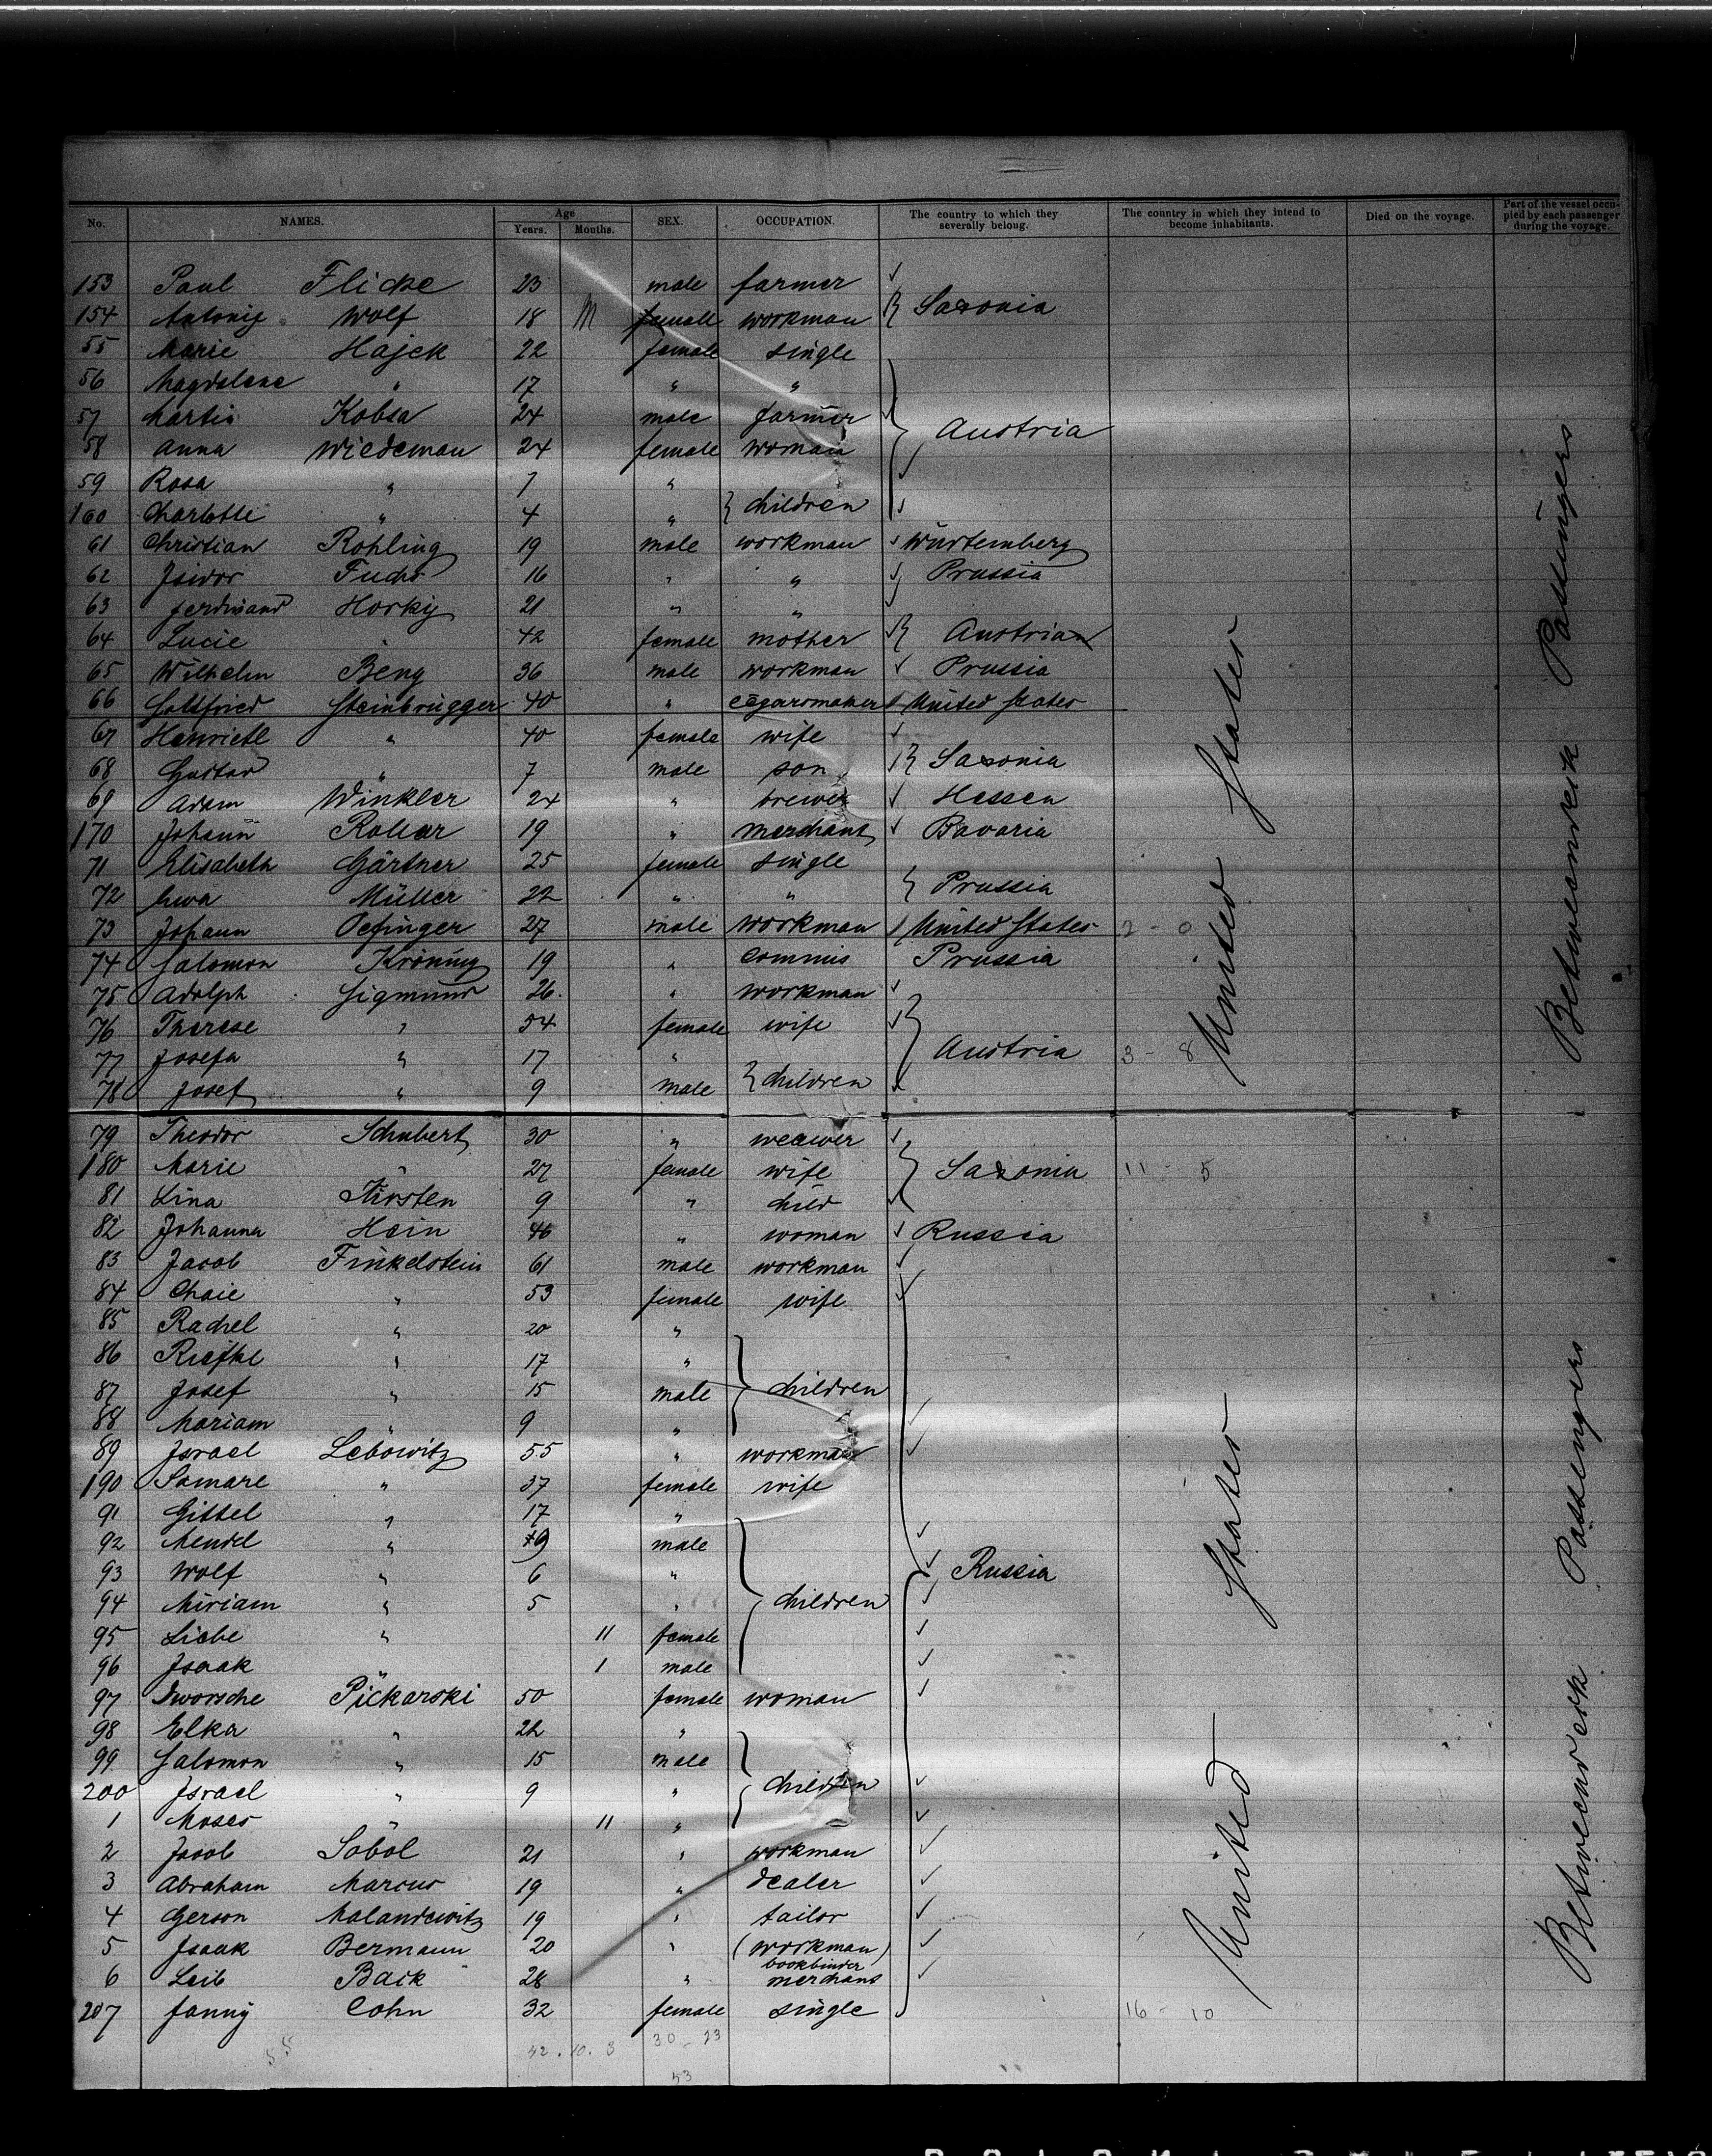 No. NAMES. Age Years. Months. SEX. OCCUPATION. The country to which they severally belong. The country in which they intend to become inhabitants. Died on the voyage. Part of the vessel occupied by each passenger during the voyage.
153 Paul Flicke 23 male farmer
154 Wolf 18 M female workman Saxonia
55 Marie Hajek 22 female single
56 Magdalene " 17 " "
57 Martin Kobsa 24 male farmer
58 Anna Wiedeman 24 female woman Austria
59 Rosa " 7 "
160 Charlotte " 4 " children
61 Christian Rohling 19 male workman Würtemberg
62 Isidor Fuchs 16 " " Prussia
63 Ferdinand Horky 21 " "
64 Lucie " 42 female mother Austria
65 Wilhelm Beng 36 male workman Prussia
66 Gottfried Steinbrügger 40 " cegarsmaker United States
67 Henriette " 40 female wife
68 Gustav " 7 male son Saxonia
69 Adam Winkler 24 " brewer Hessen
170 Johann 19 " merchant Bavaria
71 Elisabeth Gärtner 25 female single
72 Ewa Müller 22 " " Prussia
73 Johann Oefinger 27 male workman United States 2 - 0
74 Salomon Kröning 19 " commis Prussia
75 Adolph Sigmund 26 " workman
76 Therese " 54 female wife
77 Josefa " 17 " Austria 3 - 8
78 Josef " 9 male children
79 Theodor Schubert 30 " weawer
180 Marie " 27 female wife Saxonia 11 - 5
81 Lina Kirsten 9 " child
82 Johanna Hein 46 " woman Russia
83 Jacob Finkelstein 61 male workman
84 Chaie " 53 female wife
85 Rachel " 20 "
86 Riefke " 17 "
87 Josef " 15 male children
88 Mariam " 9 "
89 Israel Lebowitz 55 " workman
190 Samare " 37 female wife
91 Gittel " 17 "
92 Mendel " 9 male
93 Wolf " 6 " Russia
94 Miriam " 5 " children
95 Liebe " 11 female
96 Isaak " 1 male
97 Dworsche Pickarski 50 female woman
98 Elka " 22 "
99 Salomon " 15 male
200 Israel " 9 " children
1 Moses " 11 "
2 Jacob Sobol 21 " workman
3 Abraham Marcus 19 " dealer
4 Gerson Malandewitz 19 " tailor
5 Isaak Bermann 20 " (workman)
bookbinder
6 Leib Back 28 " merchant
207 Fanny Cohn 32 female single 16 - 10
55 42 . 10 . 3 30 - 23
53
United States
United States
Betweendeck Passengers
Betweendeck Passengers